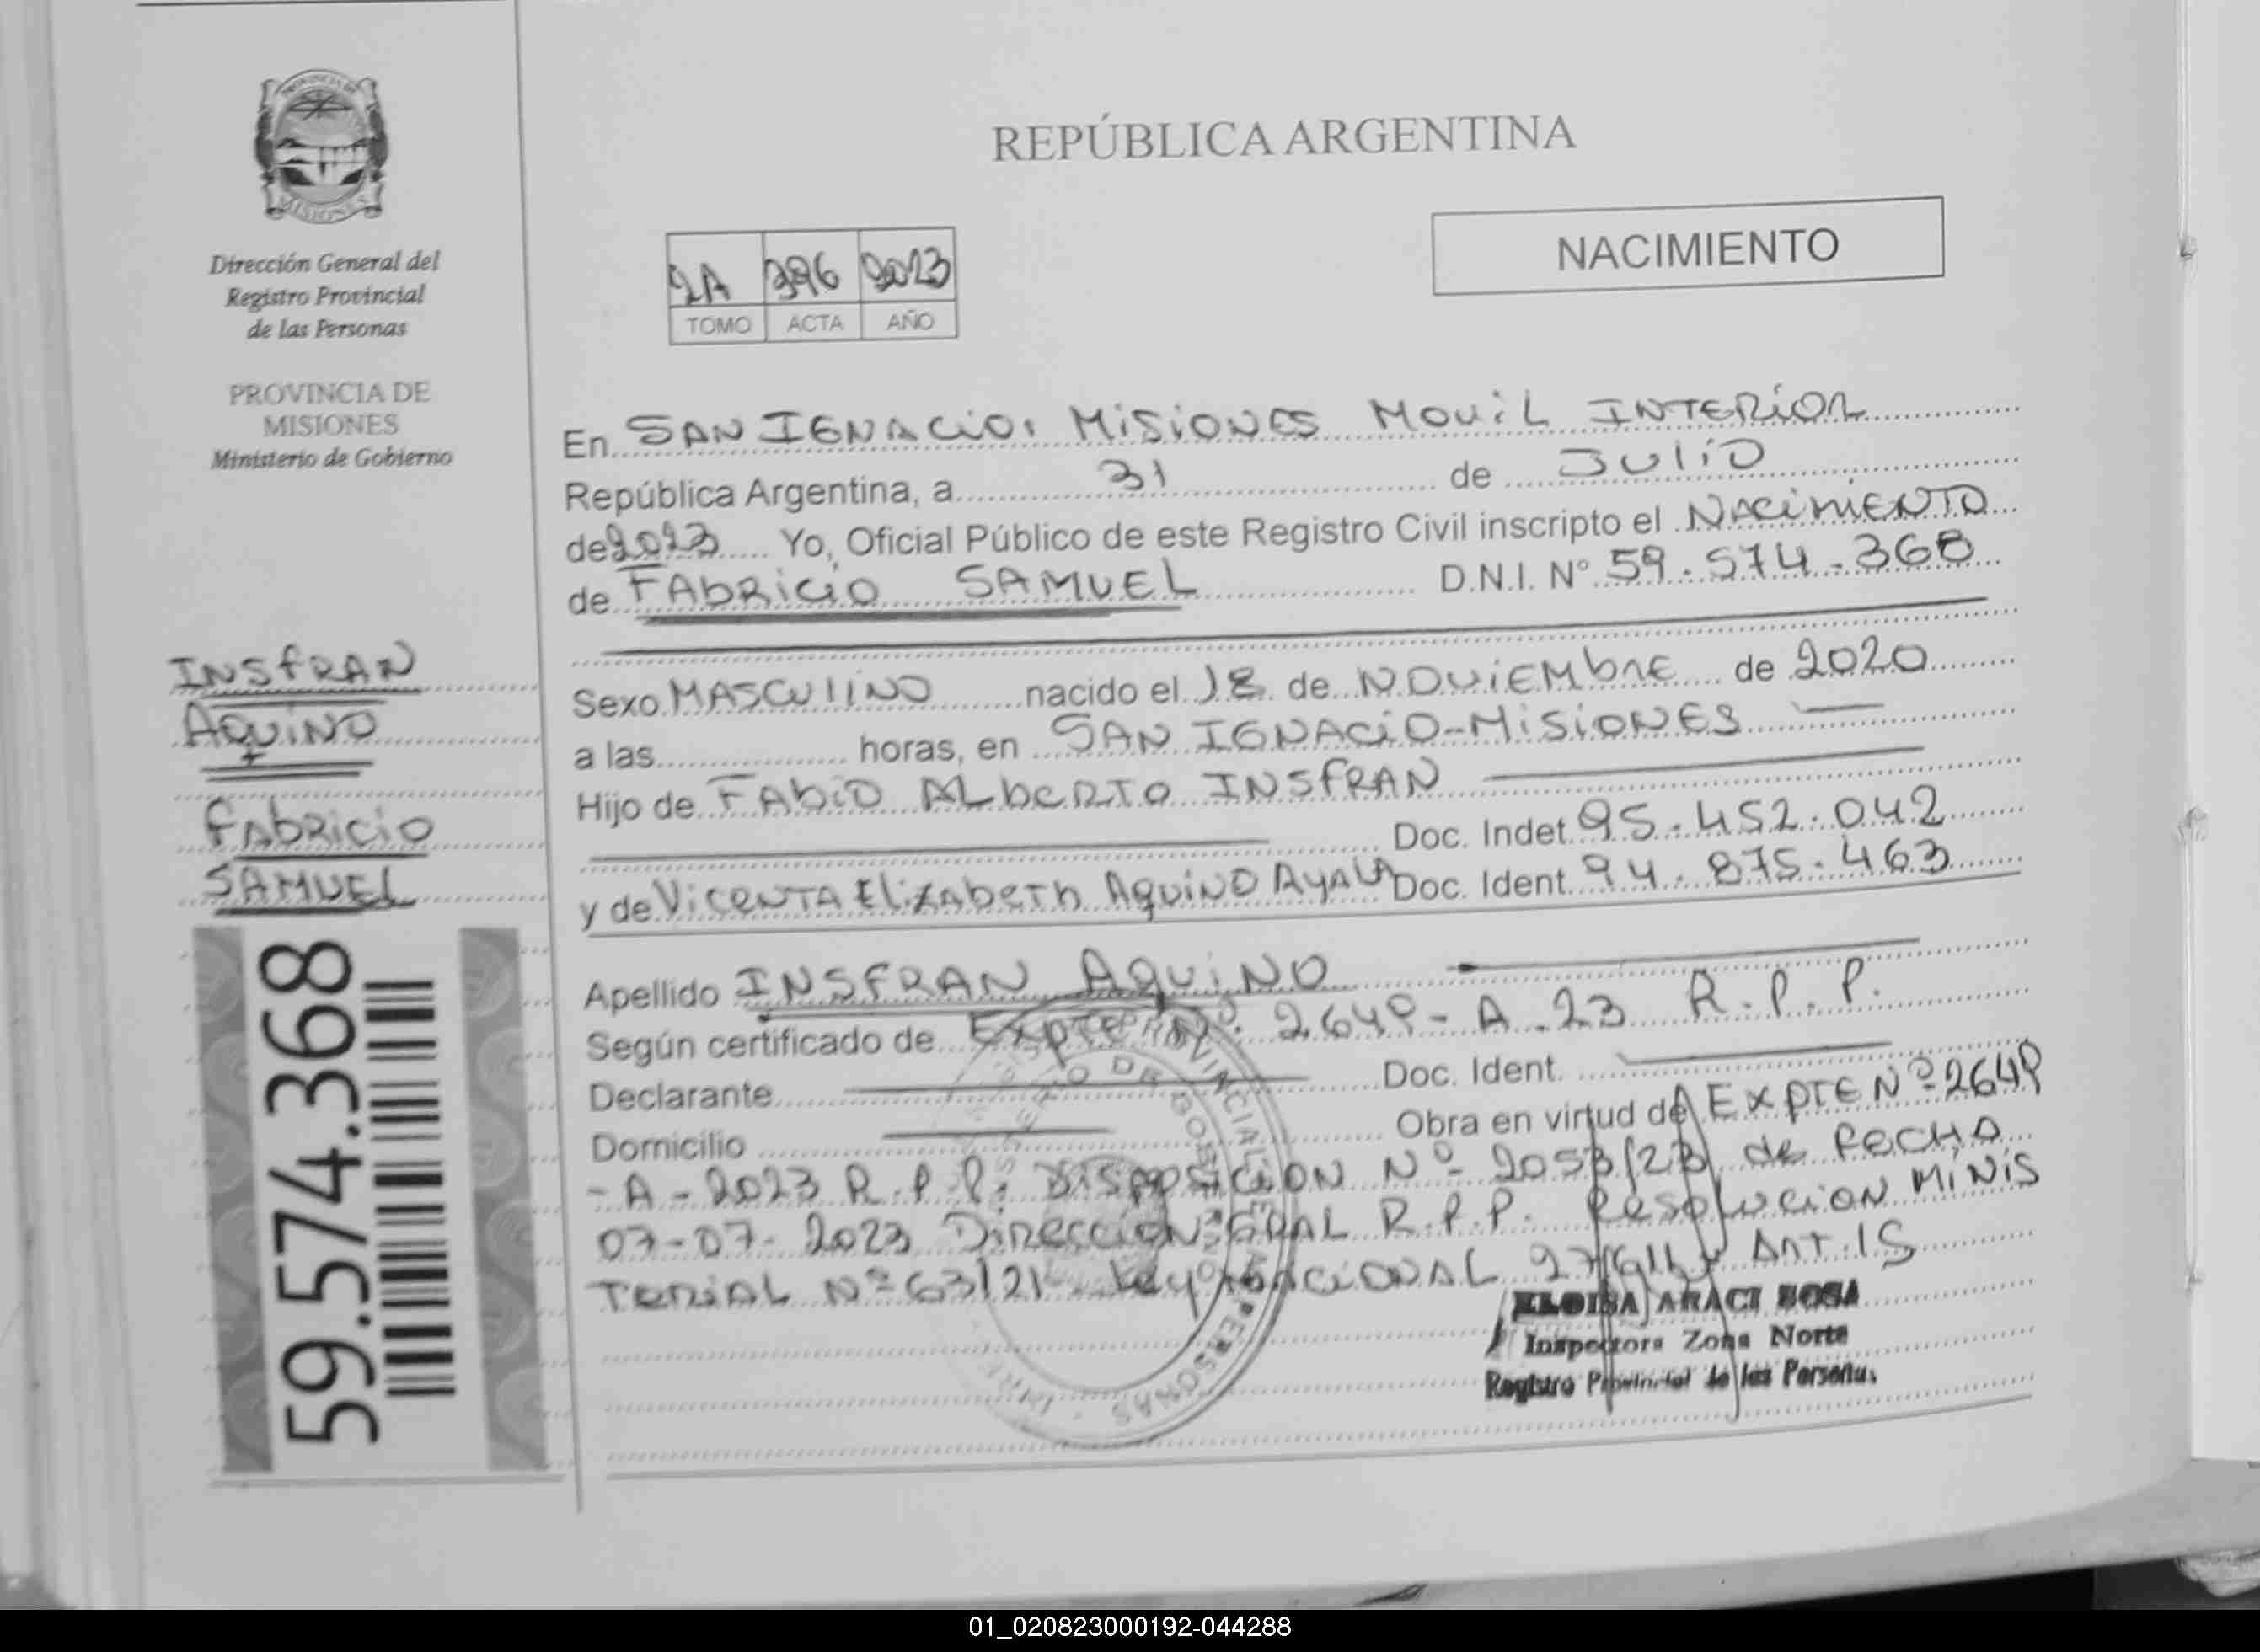 PROVINCIA DE
MISIONES
Dirección General del
Registro Provincial
de las Personas
PROVINCIA DE
MISIONES
Ministerio de Gobierno
INSFRAN
AQUINO
FABRICIO
SAMUEL
59.574.368
REPÚBLICA ARGENTINA
NACIMIENTO
2A 396 2023
TOMO ACTA AÑO
En SAN IGNACIO, MISIONES MOVIL INTERIOR
República Argentina, a 31 de JULIO
de 2023 Yo, Oficial Público de este Registro Civil inscripto el NACIMIENTO
de FABRICIO SAMUEL D.N.I. N° 59.574.368
Sexo MASCULINO nacido el 18 de NOVIEMBRE de 2020
a las horas, en SAN IGNACIO-MISIONES
Hijo de FABIO ALBERTO INSFRAN
Doc. Indet. 95.452.042
y de VICENTA ELIZABETH AQUINO AYALA Doc. Ident. 94.875.463
Apellido INSFRAN AQUINO
Según certificado de EXPTE Nº 2649-A-23 R.P.P.
Declarante Doc. Ident.
Domicilio Obra en virtud de EXPTE Nº 2649
-A-2023 R.P.P. DISPOSICION Nº 2053/23 de FECHA
07-07-2023 DIRECCION GRAL R.P.P. RESOLUCION MINIS
TERIAL Nº 63/21 Ley NACIONAL 27611 y ART.15
ELOISA ARACI SOSA
Inspectora Zona Norte
Registro Provincial de las Personas
01_020823000192-044288